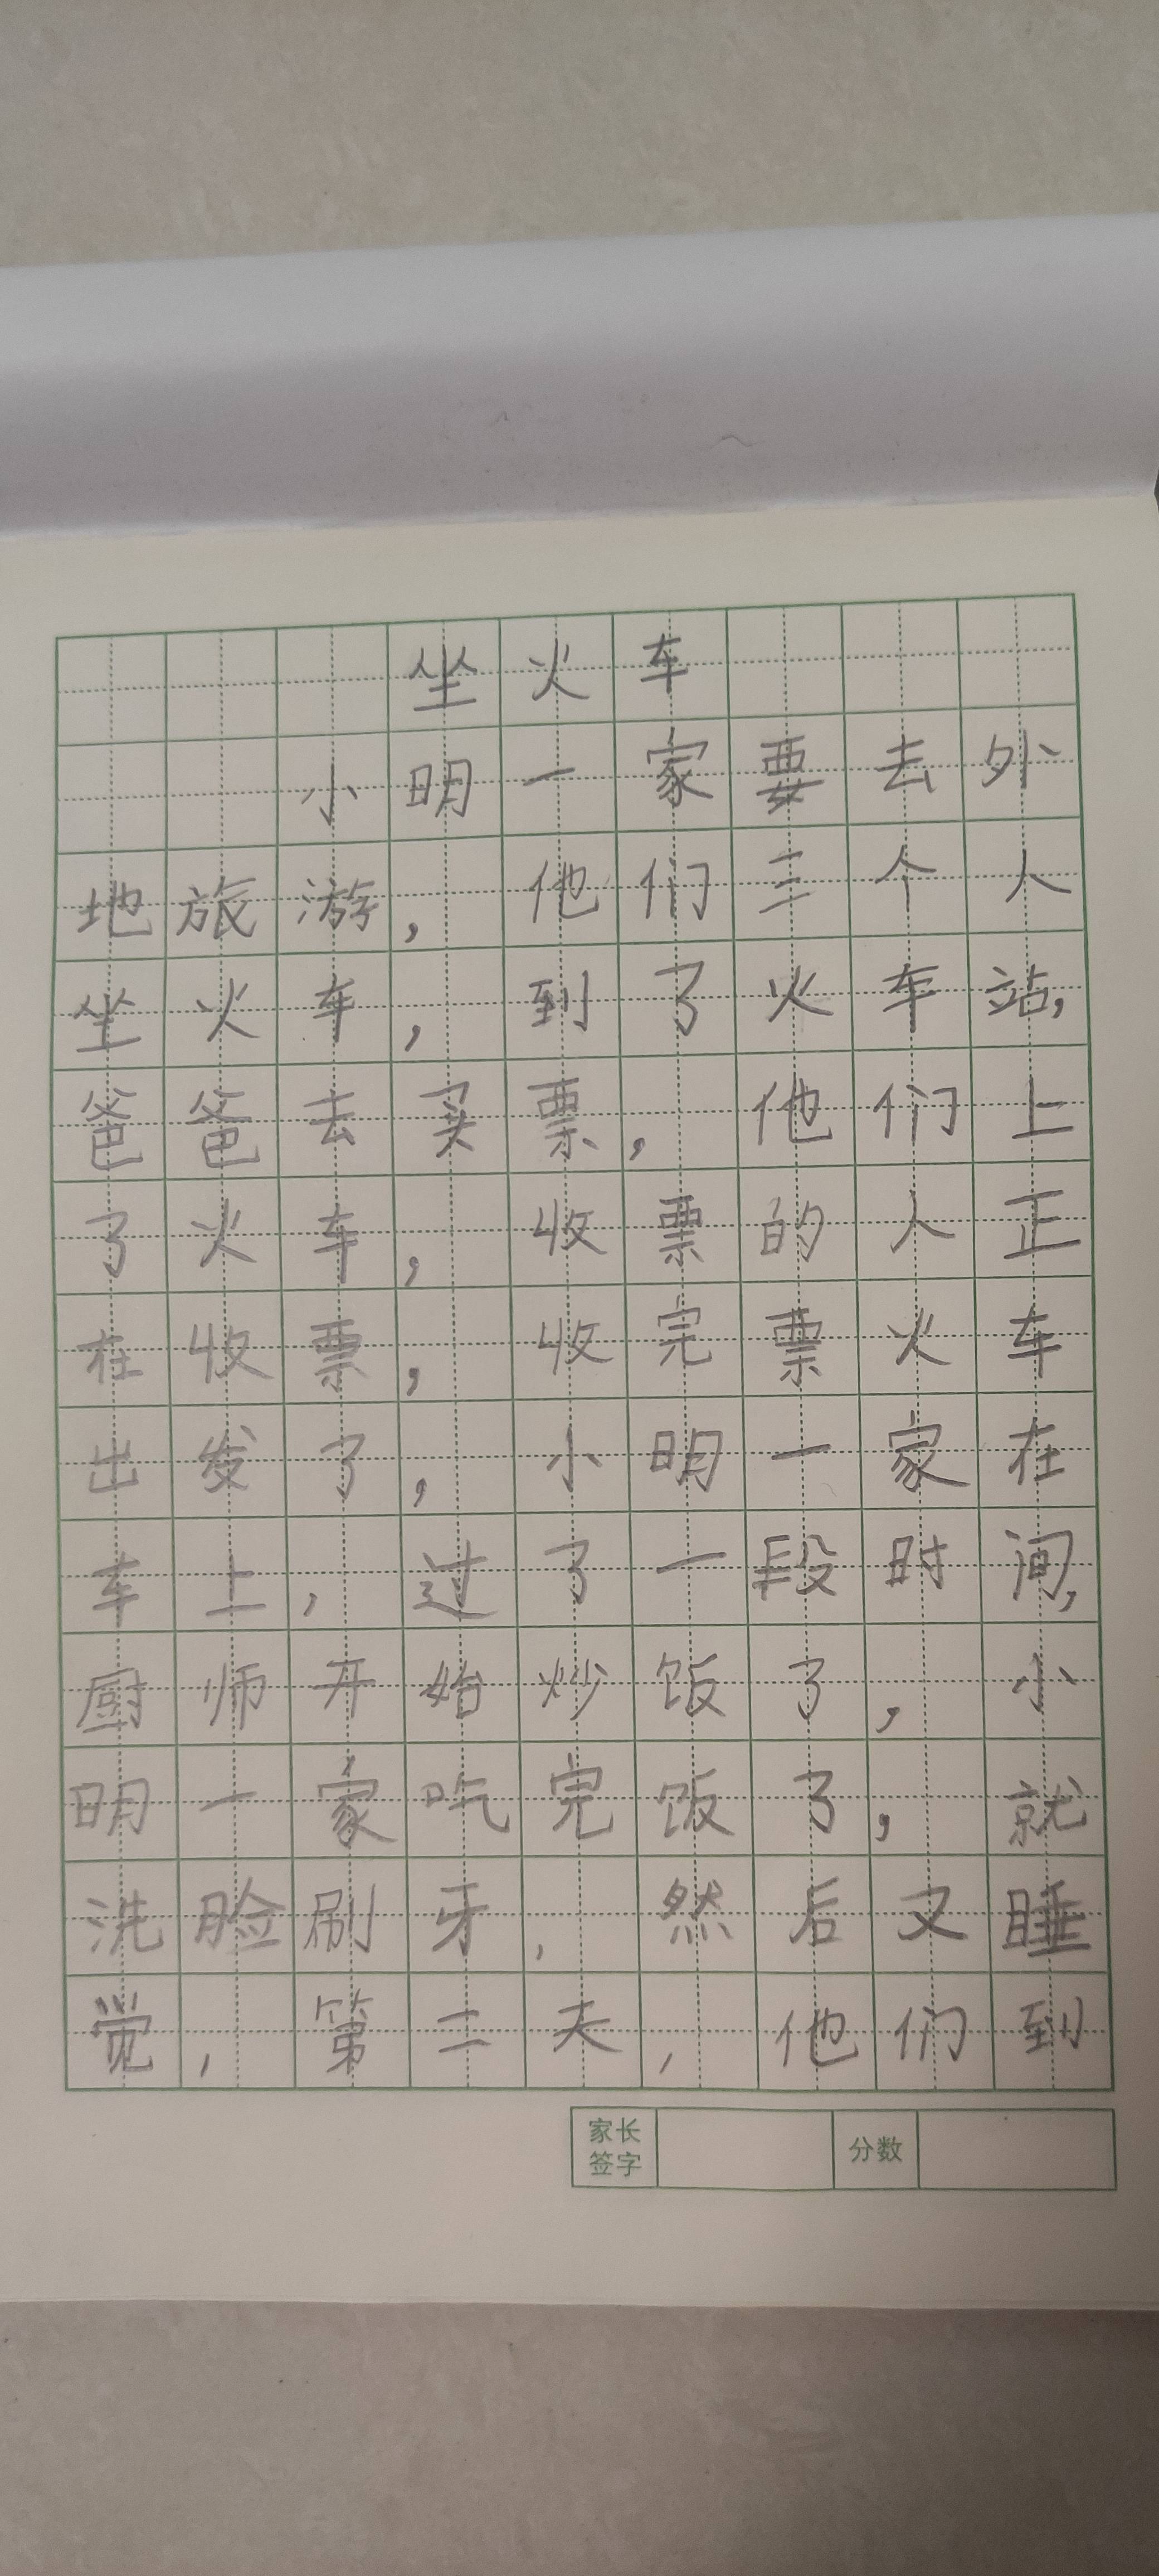 坐火车
小明一家要去外
地旅游，他们三个人
坐火车，到了火车站，
爸爸去买票，他们上
了火车，收票的人正
在收票，收完票火车
出发了，小明一家在
车上，过了一段时间，
厨师开始炒饭了，小
明一家吃完饭了，就
洗脸刷牙，然后又睡
觉，第二天，他们到
家长签字 分数